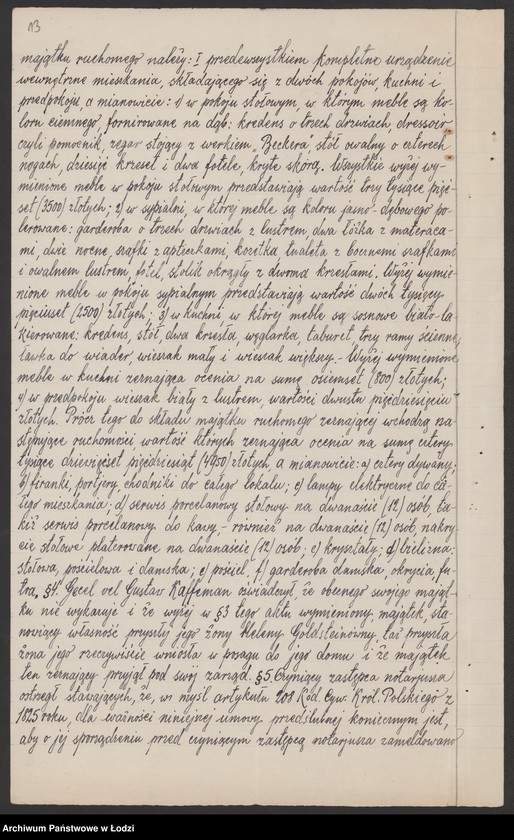 13
majątku ruchomego należy: I przedewszystkim kompletne urządzenie
wewnętrzne mieszkania, składającego się z dwóch pokojów, kuchni i
przedpokoju, a mianowicie: 1) w pokoju stołowym, w którym meble są ko-
loru ciemnego, fornirowane na dąb: kredens o trzech drzwiach, dressoir
czyli pomocnik, zegar stojący z werkiem, Beckera, stół owalny o czterech
nogach, dziesięć krzeseł i dwa fotele, kryte skórą. Wszystkie wyżej wy-
mienione meble w pokoju stołowym przedstawiają wartość trzy tysiące pięć-
set (3500) złotych; 2) w sypialni, w której meble są koloru jasno-dębowego po-
lerowane: garderoba o trzech drzwiach z lustrem, dwa łóżka z materaca-
mi, dwie nocne szafki z apteczkami, kozetka, tualeta z bocznemi szafkami
i owalnem lustrem, fotel, stolik okrągły z dwoma krzesłami. Wyżej wymie-
nione meble w pokoju sypialnym przedstawiają wartość dwóch tysięcy
pięciuset (2500) złotych; 3) w kuchni, w której meble są sosnowe biało-la-
kierowane: kredens, stół, dwa krzesła, węglarka, taburet, trzy ramy ścienne,
ławka do wiader, wieszak mały i wieszak większy.- Wyżej wymienione
meble w kuchni zeznająca ocenia na sumę osiemset (800) złotych;
4) w przedpokoju wieszak biały z lustrem, wartości dwustu pięćdziesięciu
złotych. Prócz tego do składu majątku ruchomego zeznającej wchodzą na-
stępujące ruchomości, wartość których zeznająca ocenia na sumę cztery
tysiące dziewięćset pięćdziesiąt (4950) złotych, a mianowicie: a) cztery dywany;
b) firanki, portjery, chodniki do całego lokalu; c) lampy elektryczne do ca-
łego mieszkania; d) serwis porcelanowy stołowy na dwanaście (12) osób, ta-
kiż serwis porcelanowy do kawy,- również na dwanaście (12) osób, nakry-
cie stołowe platerowane na dwanaście (12) osób; c) kryształy; d) bielizna:
stołowa, pościelowa i damska; e) pościel, f) garderoba damska, okrycia, fu-
tra. § 4. Gecel vel Gustaw Kaffeman oświadczył, że obecnego swojego mająt-
ku nie wykazuje i że wyżej w § 3 tego aktu wymieniony, majątek, sta-
nowiący własność przyszłej jego żony Heleny Goldsteinówny, taż przyszła
żona jego rzeczywiście wniosła w posagu do jego domu i że majątek
ten zeznający przyjął pod swój zarząd. § 5. Czyniący zastępca notarjusza
ostrzegł stawających, że, w myśl artykułu 208 Kod. Cyw. Król. Polskiego z
1825 roku, dla ważności niniejszej umowy przedślubnej koniecznem jest,
aby o jej sporządzeniu przed czyniącym zastępcą notarjusza zameldowano
Archiwum Państwowe w Łodzi